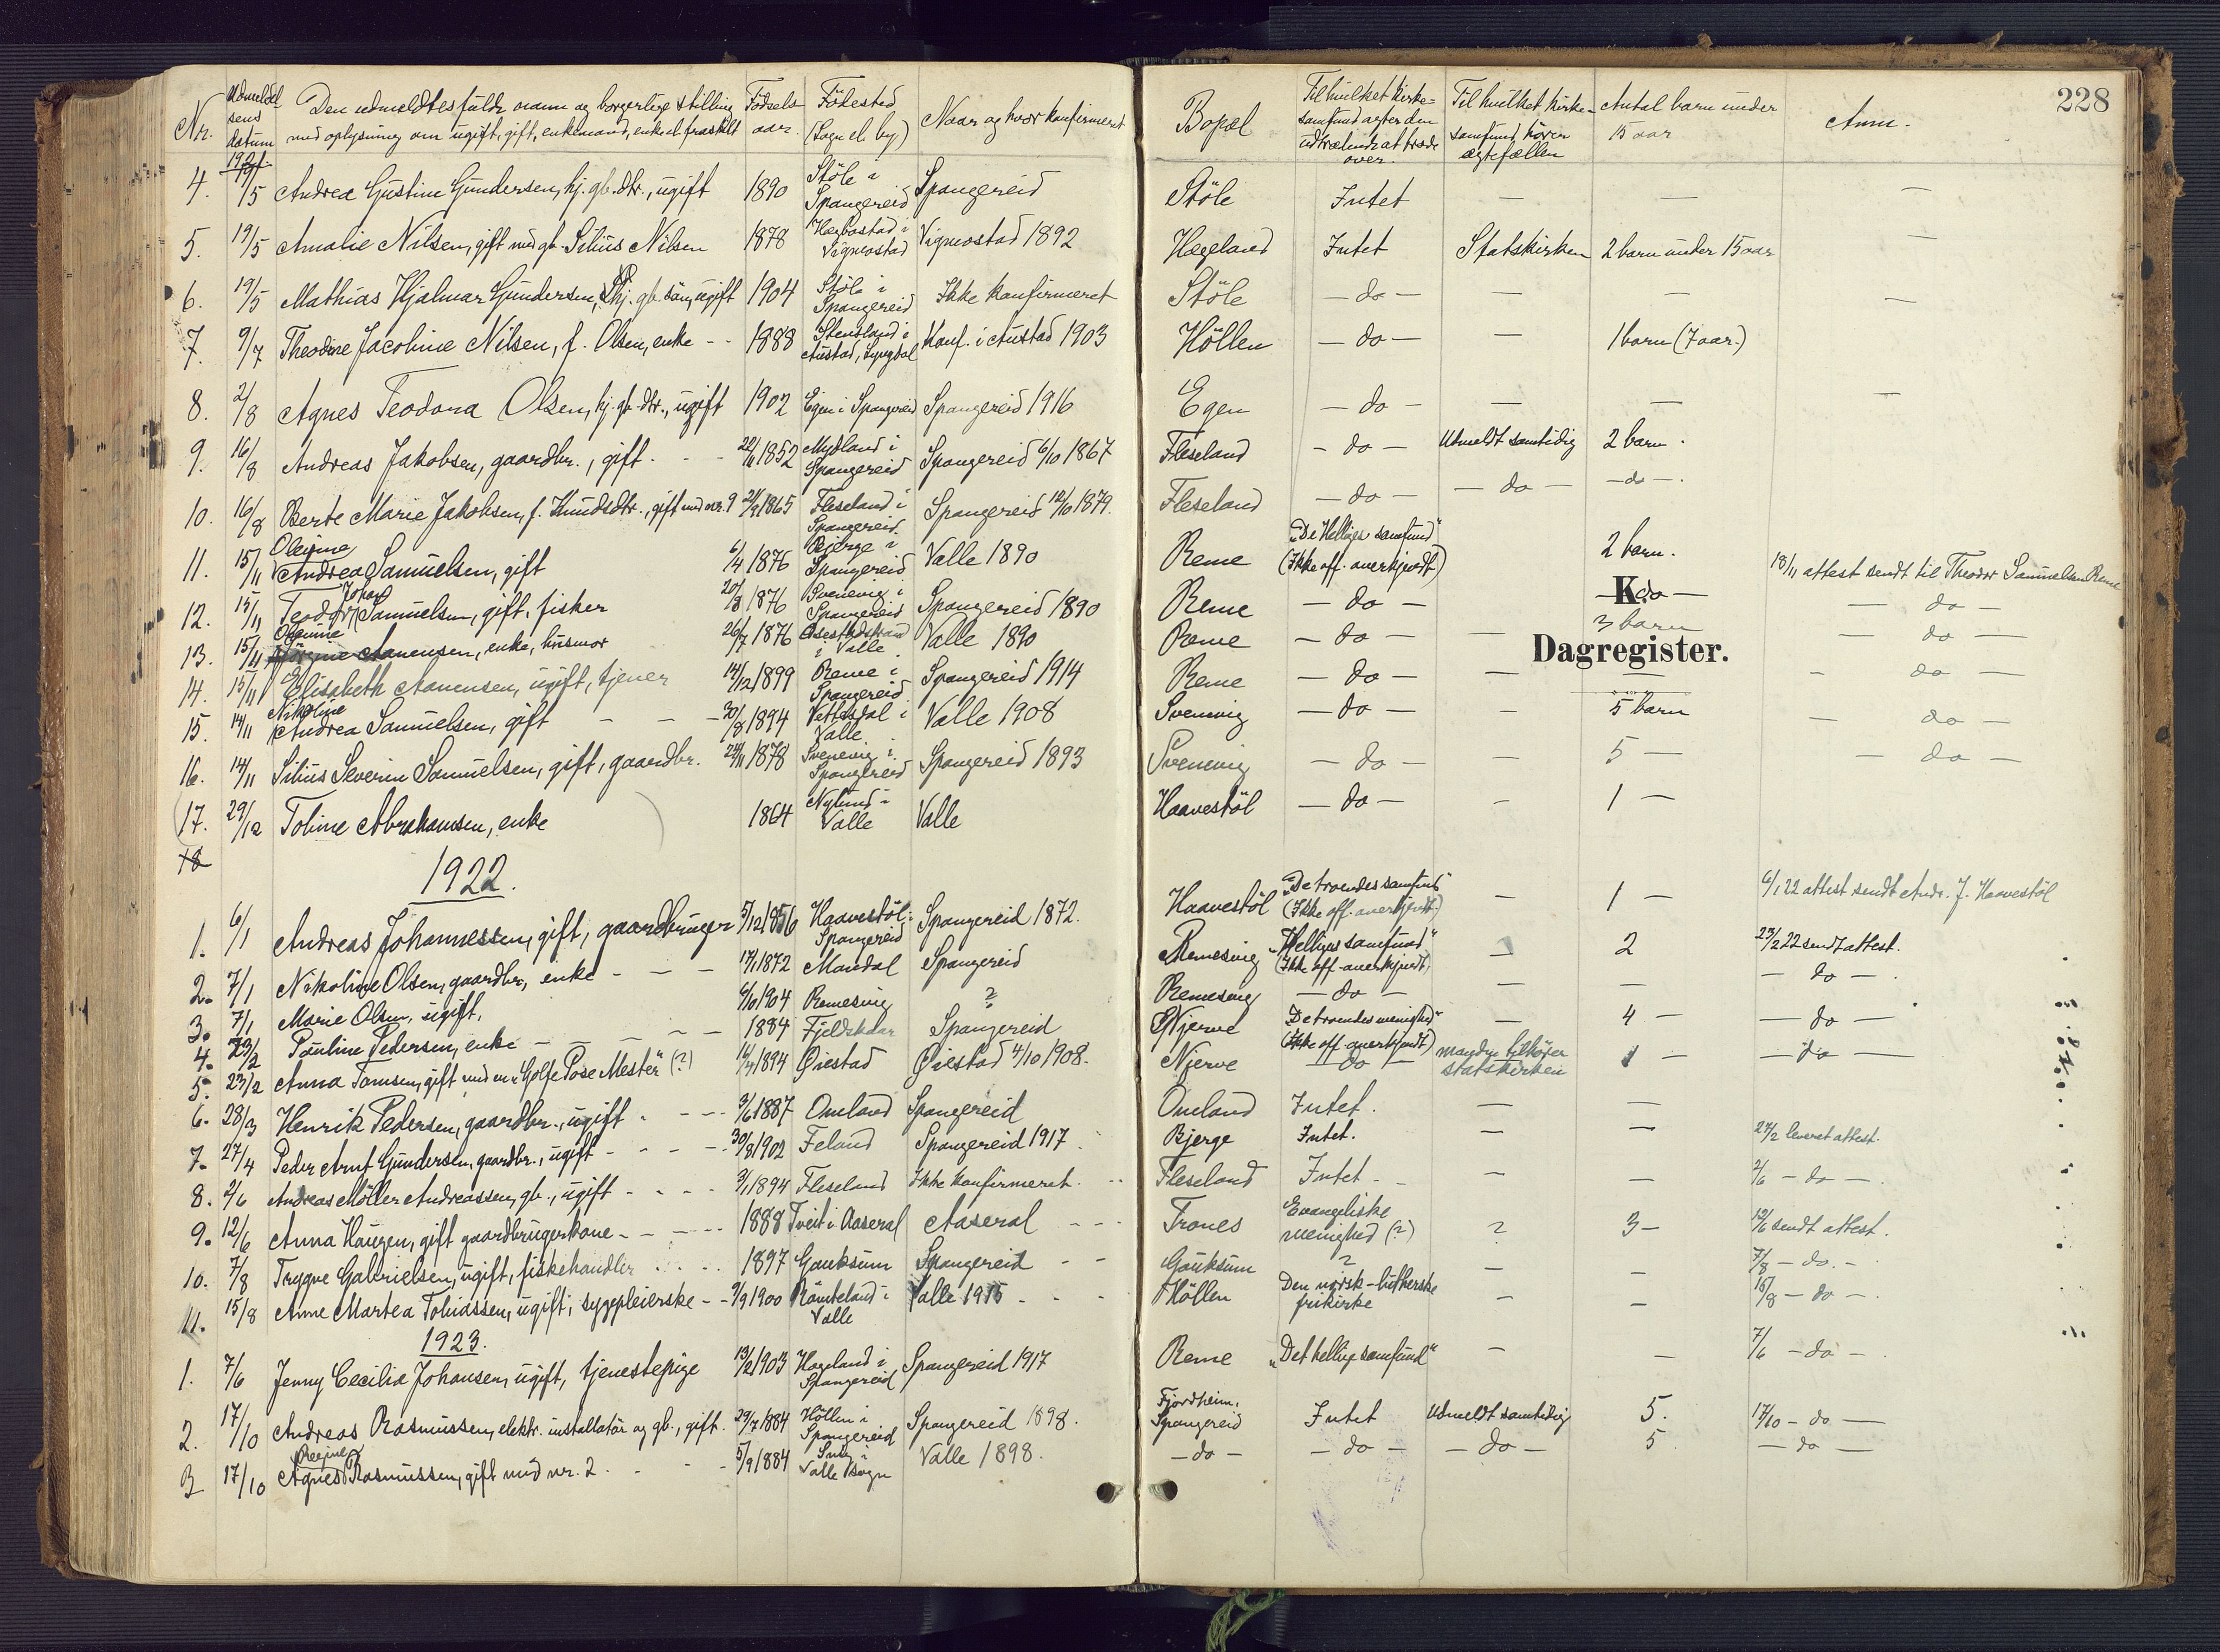 228
Nr.
Udmeldelsens datum
Den udmeldtes fulde navn og borgerlige stilling
med oplysning om ugift, gift, enkemand, enke el. fraskilt
Fødselsaar
Födested (Sogn el. by)
Naar og hvor konfirmeret
Bopæl
Til hvilket kirkesamfund agter den udtrædende at træde over
Til hvilket kirkesamfund hörer ægtefællen
Antal barn under 15 aar
Anm.
4. 19/5 Andrea Gustine Gundersen, hj. gb. dtr., ugift 1890 Stöle i Spangereid Spangereid Stöle Intet — — —
5. 19/5 Amalie Nilsen, gift med gb. Silius Nilsen 1878 Hægbostad i Vigmostad Vigmostad 1892 Hageland Intet Statskirken 2 barn under 15 aar —
6. 19/5 Mathias Hjalmar Gundersen, hj. gb. sön, ugift 1904 Stöle i Spangereid Ikke konfirmeret Stöle — do — — — —
7. 9/7 Theodine Jacobine Nilsen, f. Olsen, enke - - 1888 Stensland i Austad, Lyngdal Konf. i Austad 1903 Höllen — do — — 1 barn (7 aar.)
8. 2/8 Agnes Teodora Olsen, hj. gb. dtr., ugift 1902 Egen i Spangereid Spangereid 1916 Egen — do — — — —
9. 16/8 Andreas Jakobsen, gaardbr., gift. - - 22/11 1852 Mydland i Spangereid Spangereid 6/10 1867 Fleseland - do - Udmeldt samtidig 2 barn.
10. 16/8 Berte Marie Jakobsen, f. Knudsdtr., gift med nr. 9 21/9 1865 Fleseland i Spangereid. Spangereid 12/10 1879. Fleseland — do — — do — — do —.
11. 15/11 Olejine Andrea Samuelsen, gift 6/4 1876 Bjerge i Spangereid Valle 1890 Reme "De Helliges samfund" (Ikke off. anerkjendt) 2 barn. 18/11 attest sendt til Theodor Samuelsen Reme
12. 15/11 Teodor Johan Samuelsen, gift, fisker 20/8 1876 Svenevig i Spangereid Spangereid 1890 Reme — do — — do — — do —
K.
13. 15/11 Aanensen, enke, husmor 26/7 1876 i Valle Valle 1890 Reme — do — — 3 barn — do —
Dagregister.
14. 15/11 Elisabeth Aanensen, ugift, tjener 14/12 1899 Reme i Spangereid Spangereid 1914 Reme — do — — — - do —
15. 14/11 Nikoline Andrea Samuelsen, gift — — — 30/8 1894 Vettesdal i Valle Valle 1908 Svenevig — do — - 5 barn — do —
16. 14/11 Silius Severin Samuelsen, gift, gaardbr. 24/11 1878 Svenevig i Spangereid Spangereid 1893 Svenevig — do — - 5 — — do —
(17. 29/12 Tobine Abrahamsen, enke ) 1864 Nylund i Valle Valle Haavestöl — do — - 1 —
18
1922.
1. 6/1 Andreas Johannessen, gift, gaardbruger 5/12 1856 Haavestöl i Spangereid Spangereid 1872. Haavestöl "De troendes samfund" (Ikke off. anerkjendt.) — 1 — 6/1 22 attest sendt Andr. J. Haavestöl
2. 7/1 Nikoline Olsen, gaardbr., enke - — — 17/1 1872 Mandal Spangereid Remesvig "Helliges samfund" (Ikke off. anerkjendt) — 2 23/2 22 sendt attest.
3. 7/1 Marie Olsen, ugift, 6/10 1904 Remesvig ? Remesvig — do — — — — do —.
4. 23/2 Pauline Pedersen, enke — — — 1884 Fjeldskaar Spangereid Njerve "De troendes menighed" (Ikke off. anerkjendt) — 4 — — do —
5. 23/2 Anna Tomsen, gift med en "Golfe Pose Mester" (?) 1894 Øiestad Øiestad 4/10 1908. Njerve — do — manden tilhører statskirken 1 — — do —
6. 28/3 Henrik Pedersen, gaardbr., ugift - - - - 3/6 1887 Omland Spangereid Omland Intet. — —
7. 27/4 Peder Arnt Gundersen, gaardbr., ugift - - - - 30/8 1902 Feland Spangereid 1917 Bjerge Intet. — — 27/2 leveret attest.
8. 2/6 Andreas Möller Andreassen, gb., ugift - - - - 3/1 1894 Fleseland Ikke konfirmeret. Fleseland Intet - - — — 2/6 — do —.
9. 12/6 Anna Haugen, gift gaardbrugerkone - - - - 1888 Tveit i Aaseral Aaseral - - - Trones Evangeliske menighed (?) ? 3 — 12/6 sendt attest.
10. 7/8 Trygve Gabrielsen, ugift, fiskehandler 1897 Gauksum Spangereid - - Gauksum ? — — 7/8 — do. -
11. 15/8 Anne Martea Tobiassen, ugift, sygepleierske - - 7/9 1900 Römteland i Valle Valle 1915 - - - Höllen Den norsk-lutherske frikirke — — 15/8 — do —.
1923.
1. 7/6 Jenny Cecilia Johansen, ugift, tjenestepige 13/2 1903 Hageland i Spangereid Spangereid 1917 Reme "Det hellige samfund" — — 7/6 — do —
2. 17/10 Andreas Rasmussen, elektr. installatör og gb., gift. 29/7 1884 Höllen i Spangereid Spangereid 1898. Fjordheim, Spangereid Intet Udmeldt samtidig 5. 17/10 — do —
3 17/10 Agnes Regine Rasmussen, gift med nr. 2. - - - 5/9 1884 i Valle sogn Valle 1898. — do — — do — — do — 5 — do —